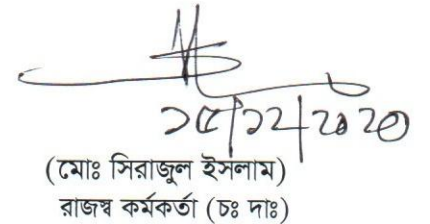 ১৫/১২/২০২০
(মোঃ সিরাজুল ইসলাম)
রাজস্ব কর্মকর্তা (চঃ দাঃ)